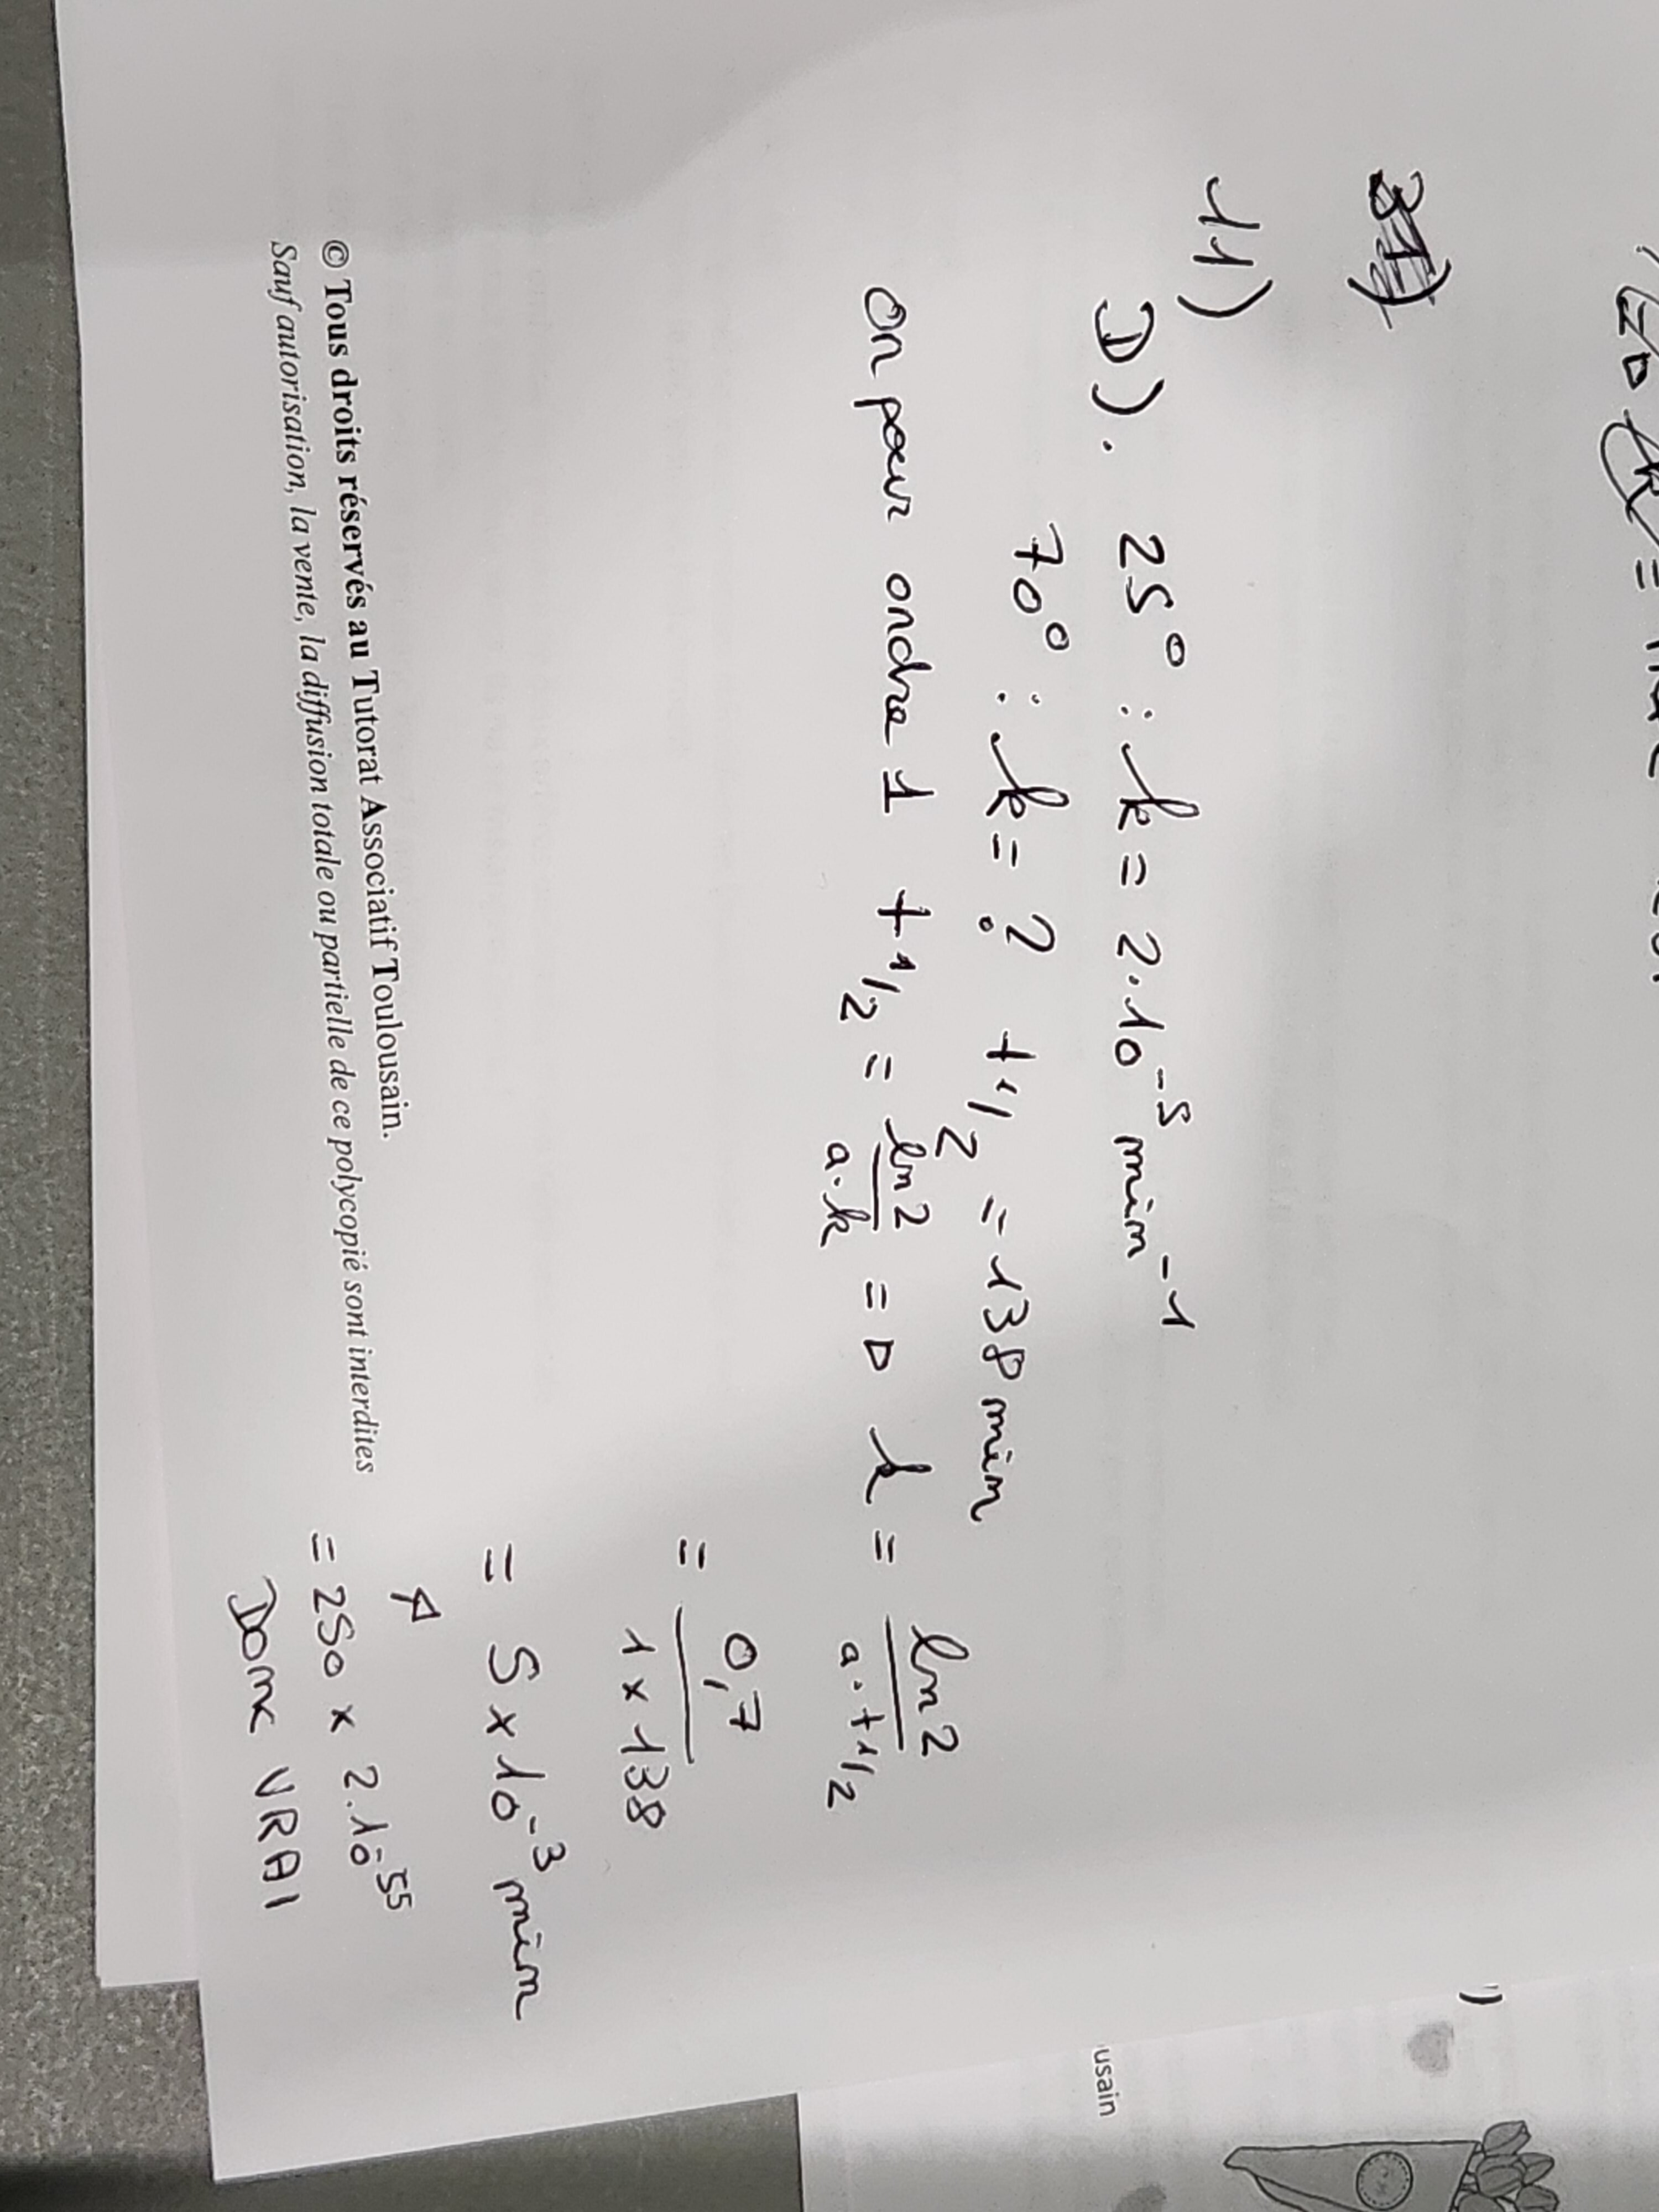 11)
D). 25° : k = 2.10⁻⁵ min⁻¹
70° : k = ? t1/2 = 138 min
On pour ordre 1 t1/2 = ln2 / a.k => k = ln2 / a.t1/2
= 0,7 / 1 x 138
= 5 x 10⁻³ min
= 250 x 2.10⁻⁵
Donc VRAI
© Tous droits réservés au Tutorat Associatif Toulousain.
Sauf autorisation, la vente, la diffusion totale ou partielle de ce polycopié sont interdites
usain